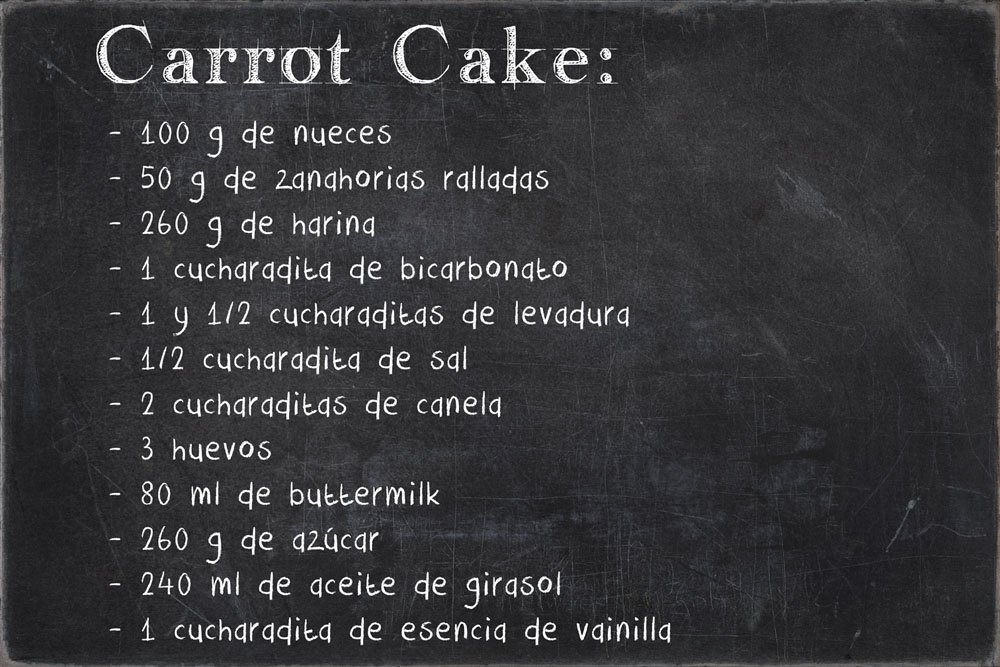 Carrot Cake:
- 100 g de nueces
- 50 g de zanahorias ralladas
- 260 g de harina
- 1 cucharadita de bicarbonato
- 1 y 1/2 cucharaditas de levadura
- 1/2 cucharadita de sal
- 2 cucharaditas de canela
- 3 huevos
- 80 ml de buttermilk
- 260 g de azúcar
- 240 ml de aceite de girasol
- 1 cucharadita de esencia de vainilla